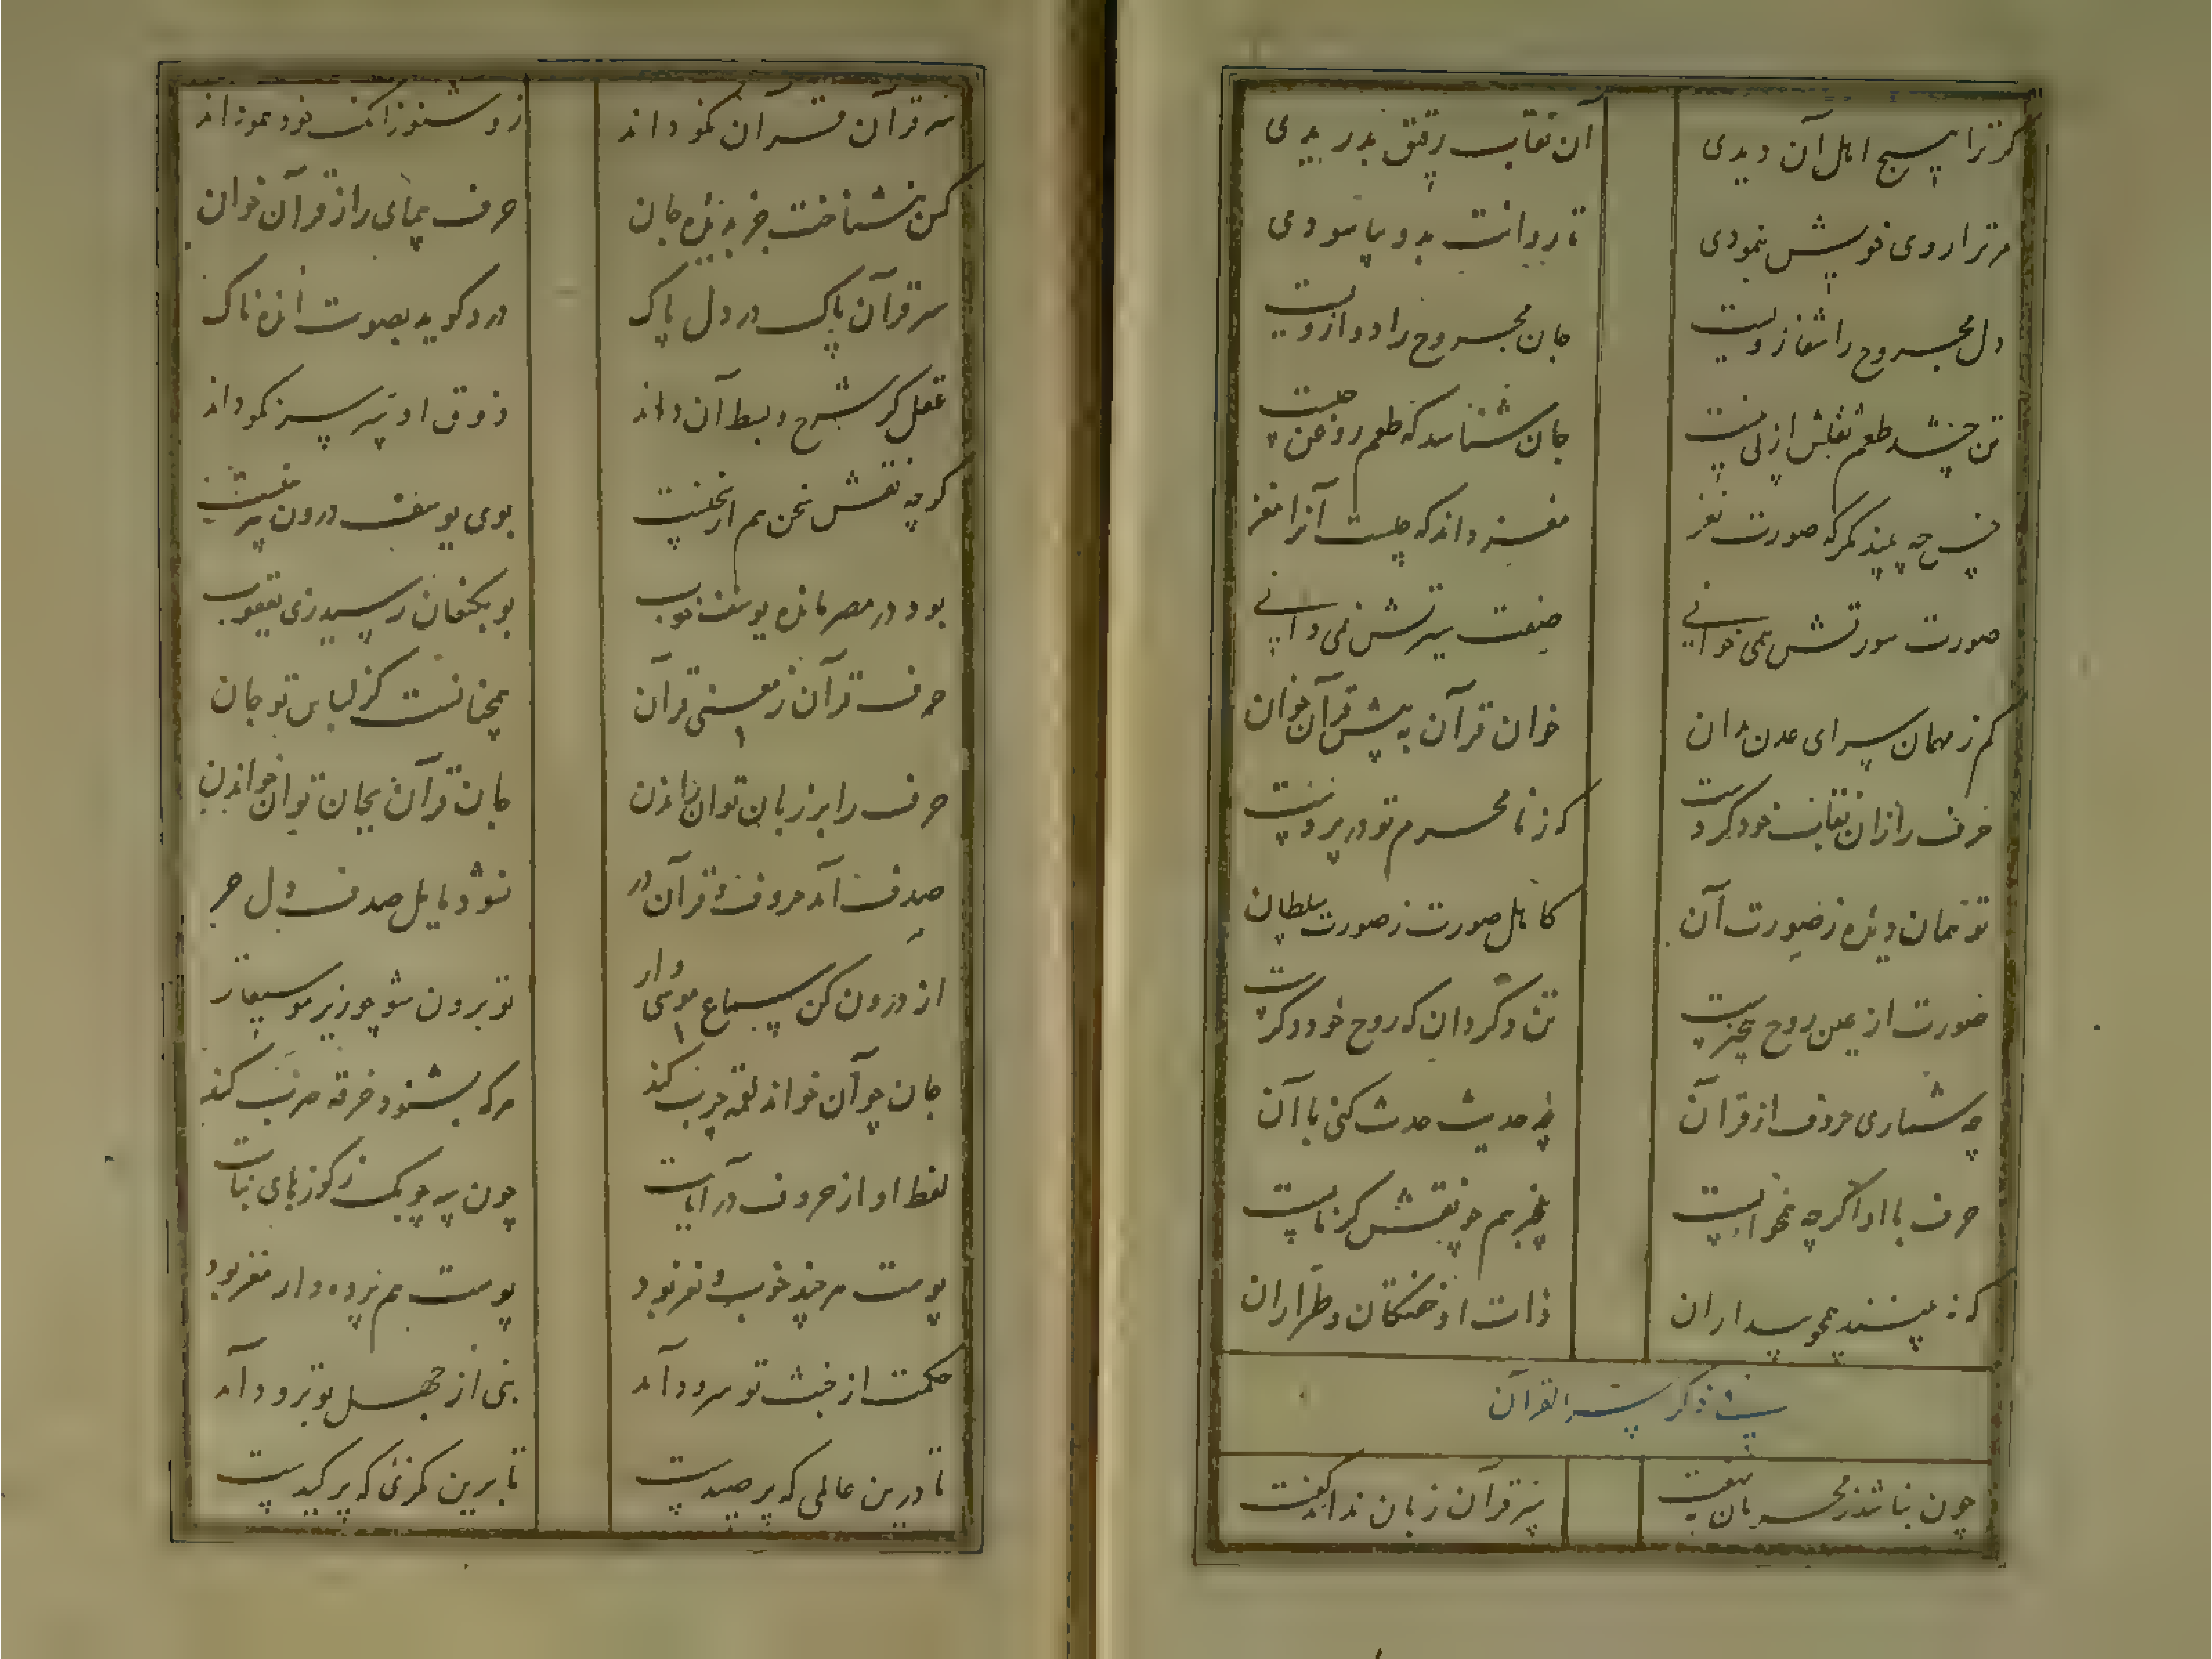 گر ترا هیچ اهل آن دیدی آن نقاب رقیق بدریدی
مر ترا روی خویش بنمودی تا روانت بدو بیاسودی
دل مجروح را شفا زویست جان مجروح را دوا زویست
تن چشد طعم ثفلش از پی زیست جان شناسد که طعم روغن چیست
حس چه بیند مگر که صورت نغز مغز داند که چیست آنرا مغز
صورت سورتش همی خوانی صفت سیرتش نمی دانی
کم ز مهمان سرای عدن مدان خوان قرآن به پیش قرآن خوان
حرف را زان نقاب خود کردست که ز نامحرم تو در پردست
تو همان دیده ز صورت آن کاهل صورت ز صورت سلطان
صورت از عین روح بیخبرست تن دگر دان که روح خود دگرست
چه شماری حروف از قرآن چه حدیث حدث کنی با آن
حرف با او اگر چه همخوابست بیخبر همچو نقش گرمابست
که نه بینند همچو بیداران ذات او خفتگان و طراران
ذکر سر القرآن
چون نباشد ز محرمان بنهفت سر قرآن زبان نداند گفت
سر قرآن قرآن نکو داند زو شنو زانکه خود همو داند
کس نشناخت جز بدیده جان حرف پیمای را ز قرآن خوان
سر قرآن پاک در دل پاک درد گوید بصوت اندهناک
عقل کی شرح و بسط آن داند ذوق او سر سر نکو داند
گرچه نقش سخن هم از سخنست بوی یوسف درون پیرهنست
بود در مصر مانده یوسف خوب بو بکنعان رسید زی یعقوب
حرف قرآن ز معنی قرآن همچنانست کز لباس تو جان
حرف را بر زبان توان راندن جان قرآن بجان توان خواندن
صدف آمد حروف و قرآن در نشود مایل صدف دل حر
از درون کن سماع موسی وار تو برون شو چو زیر موسیقار
جان چو آن خواند لقمه چرب کند هر که بشنود خرقه ضرب کند
لفظ او از حروف در آیات چون سه چوبک ز کوزهای نبات
پوست هر چند خوب و نغز بود پوست هم پرده دار مغز بود
حکمت از خبث تو سرود آمد نبی از جهل تو فرود آمد
تا درین عالمی که پر صیدست تا برین مرکزی که پر کیدست